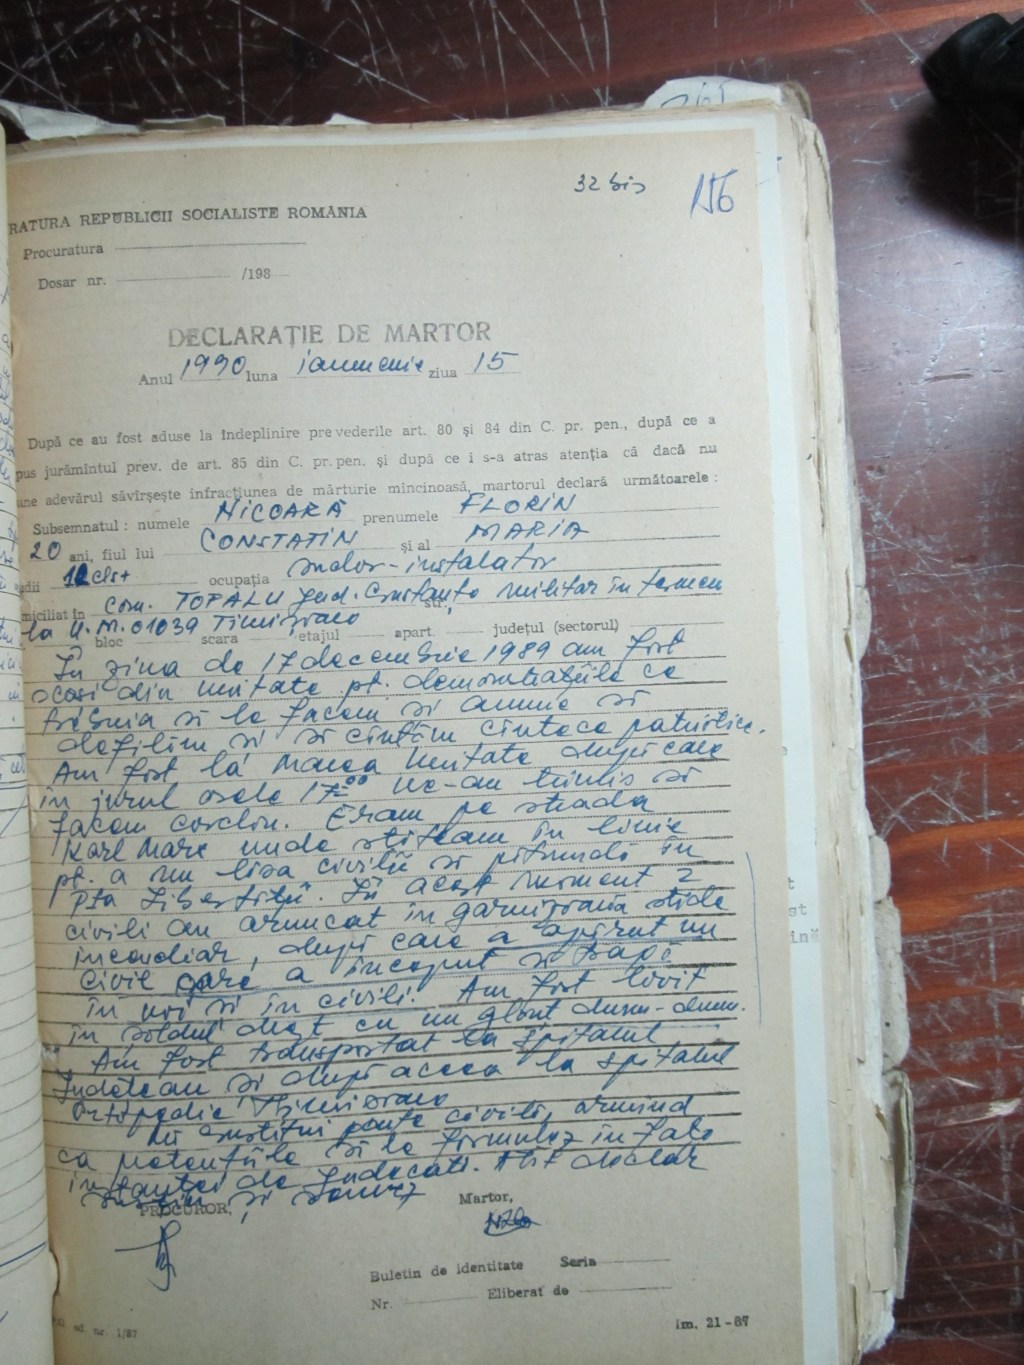 32 bis
156
RATURA REPUBLICII SOCIALISTE ROMÂNIA
Procuratura
Dosar nr. /198
DECLARAȚIE DE MARTOR
Anul 1990 luna ianuarie ziua 15
După ce au fost aduse la îndeplinire prevederile art. 80 și 84 din C. pr. pen., după ce a
pus jurămîntul prev. de art. 85 din C. pr. pen. și după ce i s-a atras atenția că dacă nu
une adevărul săvîrșește infracțiunea de mărturie mincinoasă, martorul declară următoarele :
Subsemnatul : numele NICOARĂ prenumele FLORIN
20 ani, fiul lui CONSTATIN și al MARIA
dii 12 cls+ ocupația sudor-instalator
miciliat în com. TOPALU jud. Constanța str. militar în termen
la U.M. 01039 Timișoara bloc scara etajul apart. județul (sectorul)
În ziua de 17 decembrie 1989 am fost
scoși din unitate pt. demonstrațiile ce
trebuia să le facem și anume să
defilăm și să cîntăm cîntece patriotice.
Am fost la Marea Unitate după care
în jurul orele 17 00 ne-au trimis să
facem cordon. Eram pe strada
Karl Marx unde stăteam în linie
pt. a nu lăsa civilii să pătrundă în
Pța Libertății. În acest moment 2
civili au aruncat în garnizoană sticle
incendiar, după care a apărut un
civil care a început să tragă
în noi și în civili. Am fost lovit
în șoldul drept cu un glonț dum-dum.
Am fost transportat la spitalul
Județean și după aceea la spitalul
Ortopedie Timișoara
Nu constitui parte civilă, urmînd
ca pretențiile să le formulez în fața
instanței de judecată. Atît declar
susțin și semnez
PROCUROR,
Martor,
Buletin de identitate Seria
Nr. Eliberat de
ed. nr. 1/87
Im. 21-87